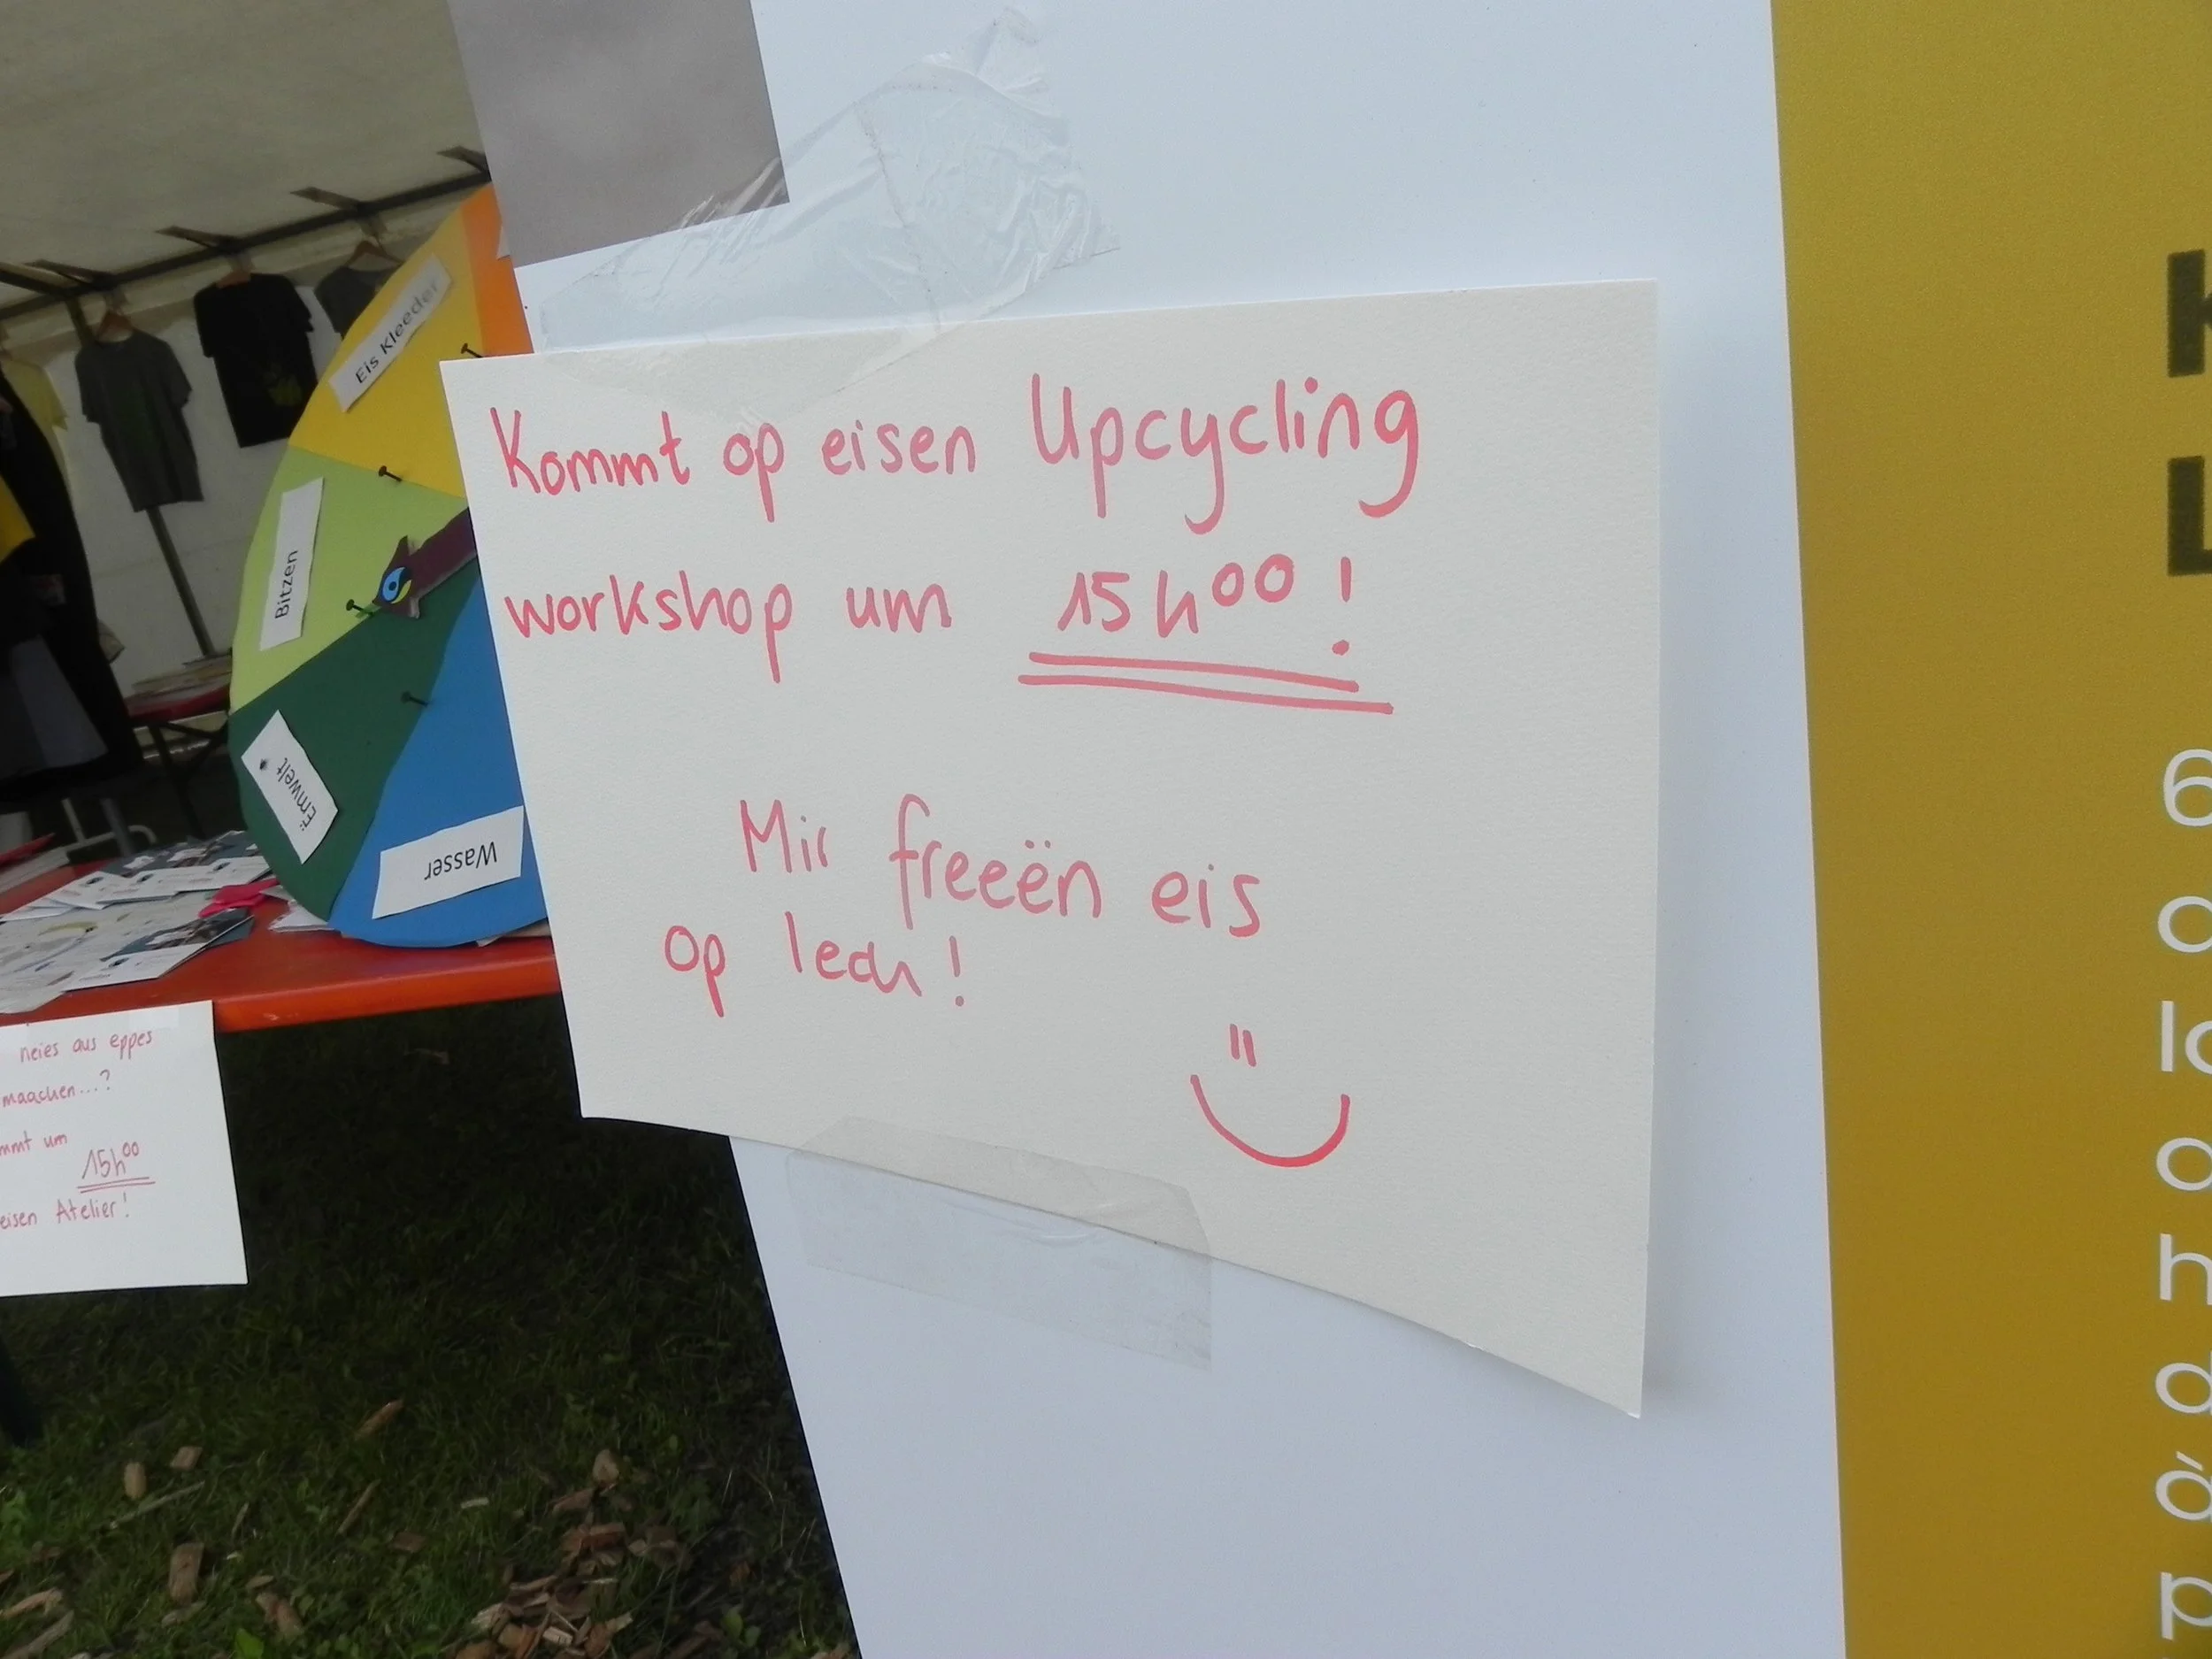 Kommt op eisen Upcycling
workshop um 15h00!
Mir freeën eis
op Iech!
Eis Kleeder
Bitzen
Ëmwelt
Wasser
neies aus eppes
maachen...?
um
15h00
eisen Atelier!